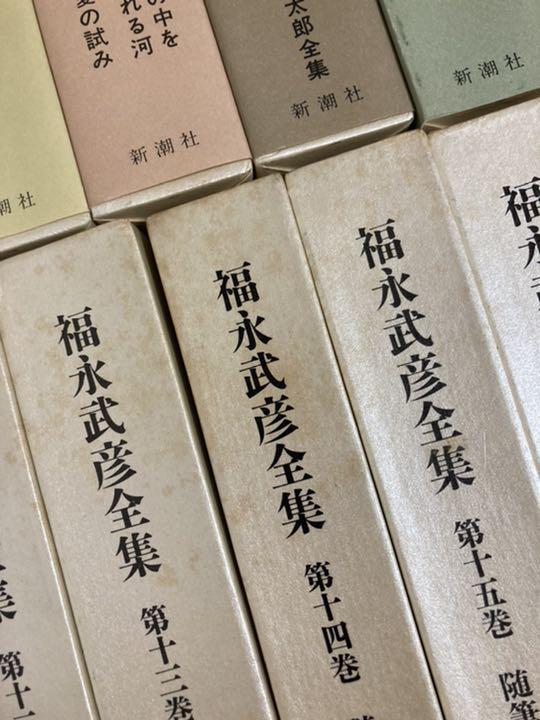 の中を
れる河
愛の試み
新潮社
太郎全集
新潮社
新潮社
潮社
福永武彦全集
第十三巻
福永武彦全集
第十四巻
福永武彦全集
第十五巻
随筆
集
第十
福永